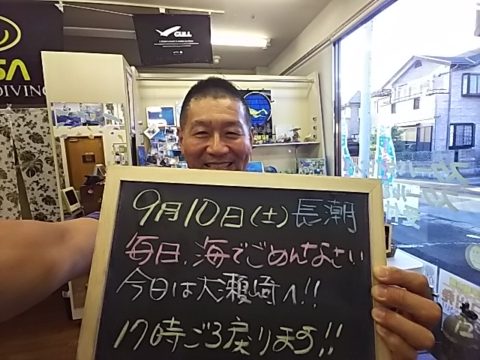 GULL
SA
DIVING
9月10日(土)長潮
毎日、海でごめんなさい
今日は大瀬崎へ!!
17時ごろ戻ります!!